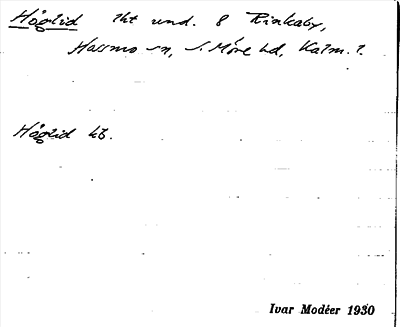 Höglid lht und. 8 Rinkaby,
Hassmo sn, S. Möre hd, Kalm. l.
Höglid kb.
Ivar Modéer 1930